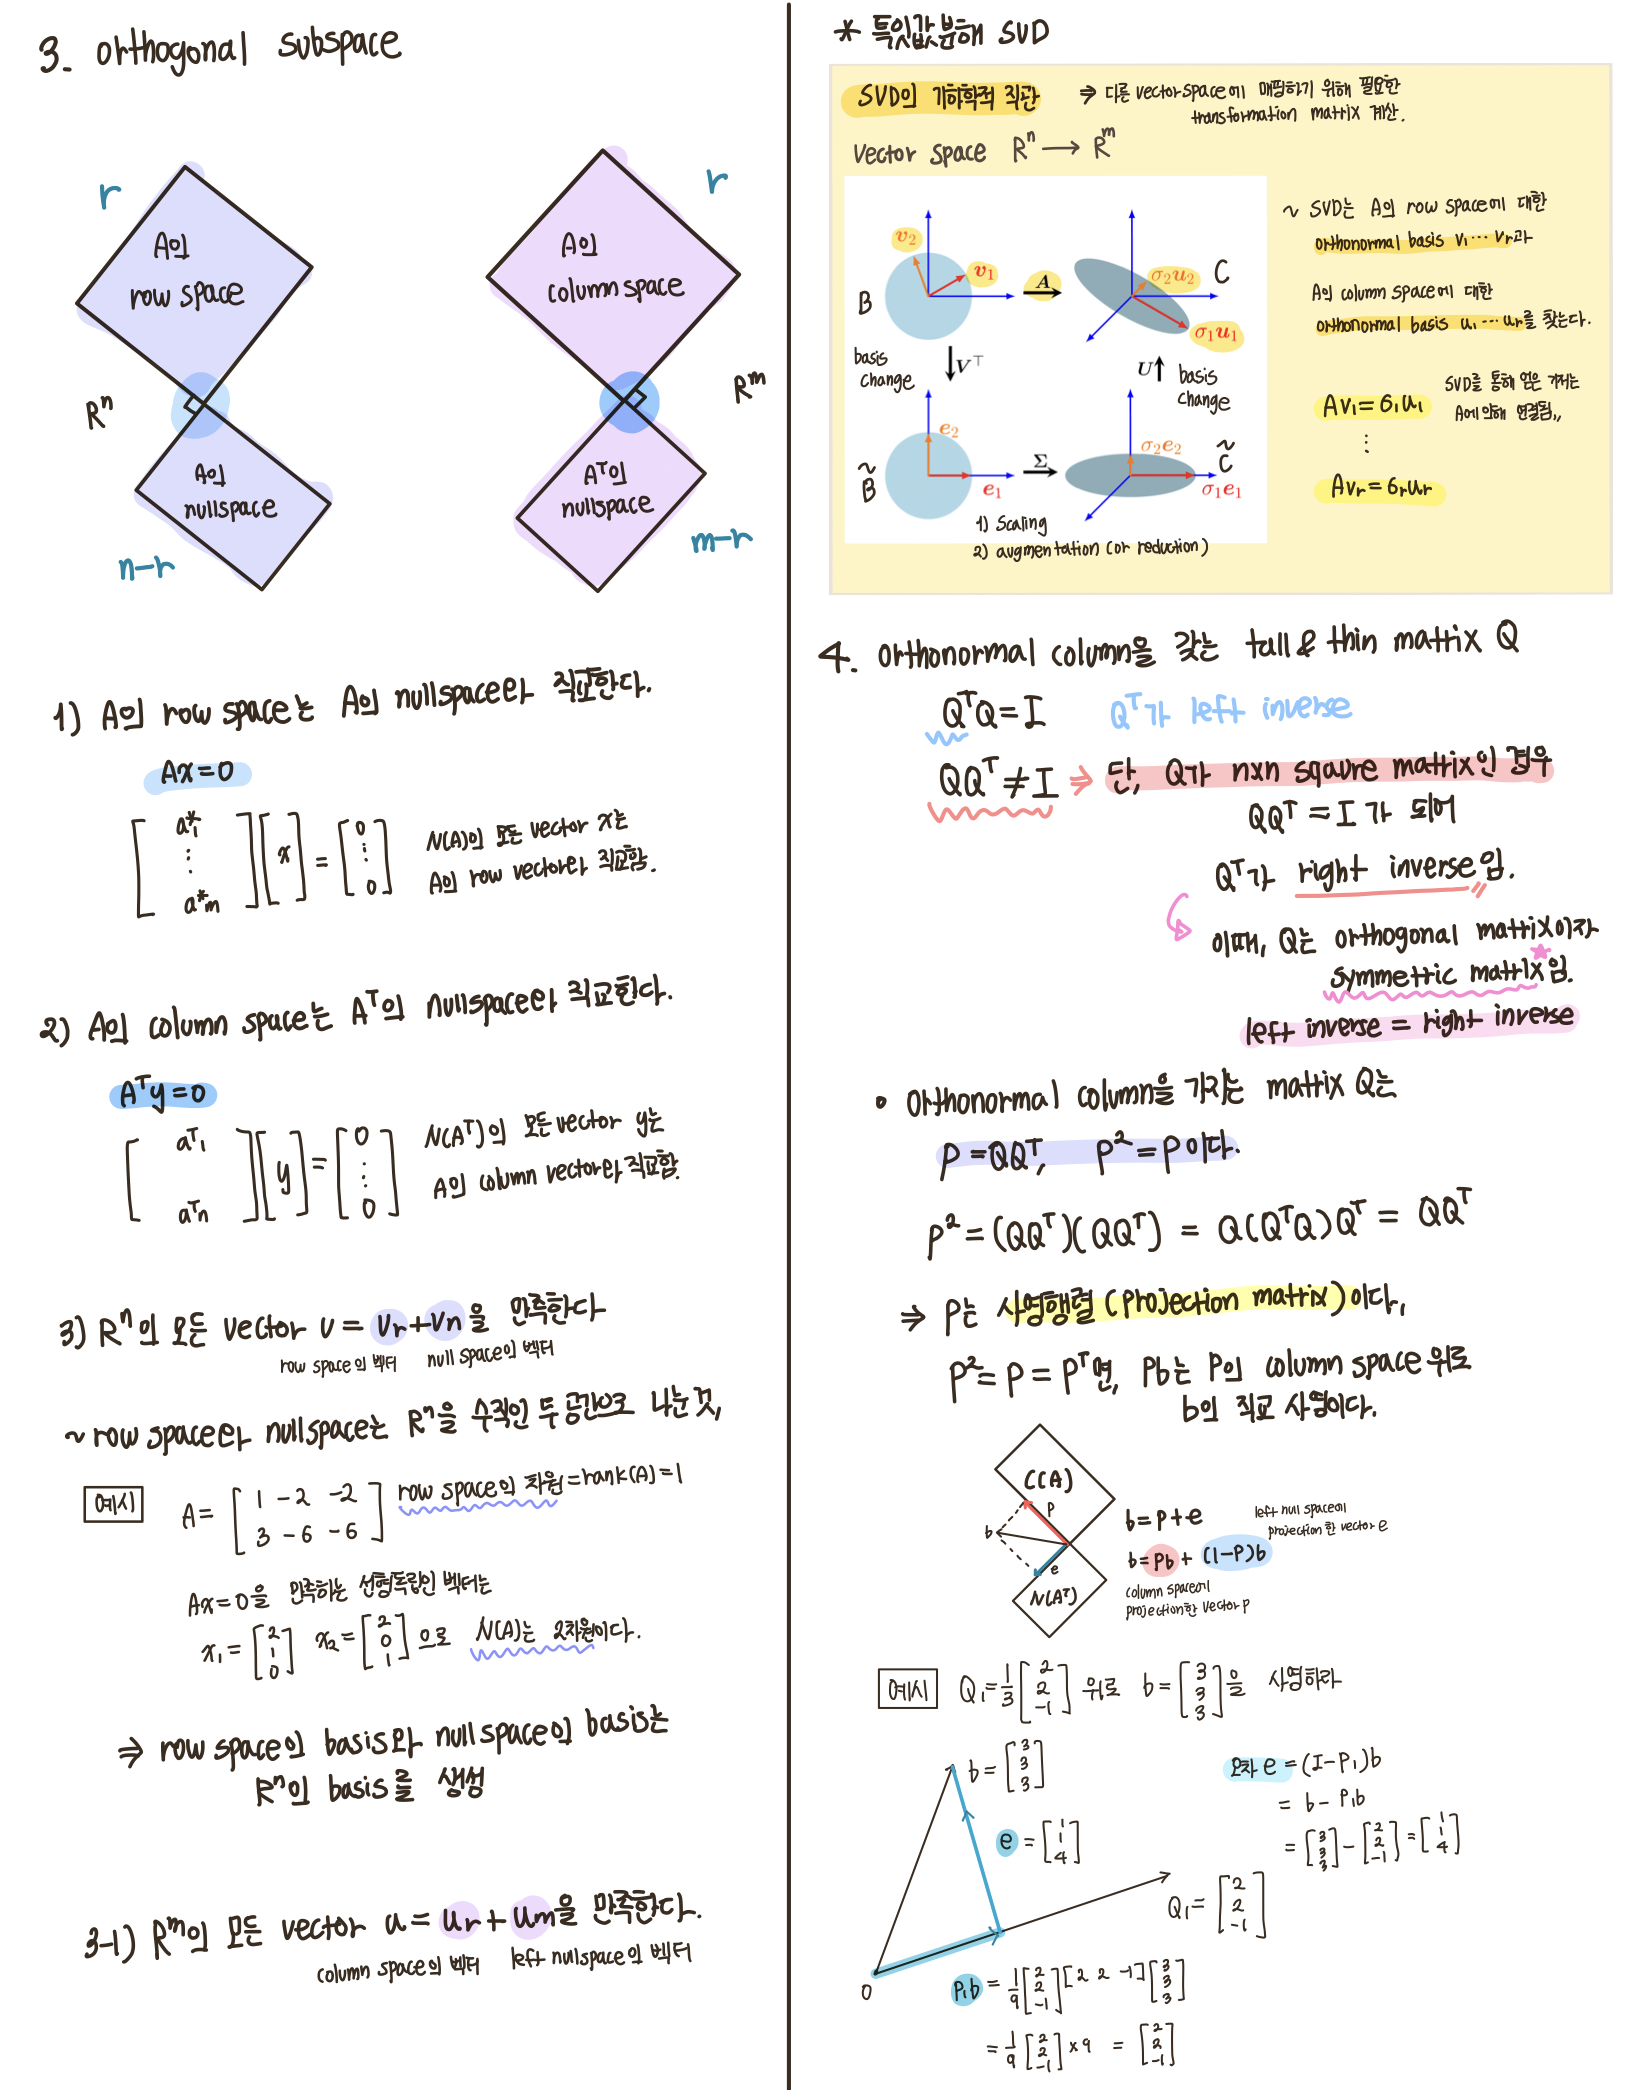 3. orthogonal subspace
r
A의
row space
R^n
A의
nullspace
n-r
r
A의
column space
R^m
A^T의
nullspace
m-r
1) A의 row space는 A의 nullspace와 직교한다.
Ax=0
[a*_1 ⋮ a*_m][x] = [0 ⋮ 0]
N(A)의 모든 vector x는
A의 row vector와 직교함.
2) A의 column space는 A^T의 nullspace와 직교한다.
A^T y=0
[a^T_1 a^T_n][y] = [0 ⋮ 0]
N(A^T)의 모든 vector y는
A의 column vector와 직교함.
3) R^n의 모든 vector v = v_r+v_n을 만족한다
row space의 벡터 null space의 벡터
~ row space와 nullspace는 R^n을 수직인 두 공간으로 나눈 것,
예시 A = [1 -2 -2; 3 -6 -6] row space의 차원=rank(A)=1
Ax=0을 만족하는 선형독립인 벡터는
x_1 = [2 1 0] x_2 = [2 0 1] 으로 N(A)는 2차원이다.
⇒ row space의 basis와 null space의 basis는
R^n의 basis를 생성
3-1) R^m의 모든 vector u = u_r + u_m을 만족한다.
column space의 벡터 left nullspace의 벡터
* 특잇값분해 SVD
SVD의 기하학적 직관 ⇒ 다른 vector space에 매핑하기 위해 필요한
transformation matrix 계산.
Vector space R^n → R^m
v_2
v_1
B
A
σ_2u_2
C
σ_1u_1
basis
change
V^⊤
U
basis
change
e_2
B̃
e_1
Σ
σ_2e_2
C̃
σ_1e_1
1) Scaling
2) augmentation (or reduction)
~ SVD는 A의 row space에 대한
orthonormal basis v_1 ⋯ v_r과
A의 column space에 대한
orthonormal basis u_1 ⋯ u_r를 찾는다.
Av_1 = σ_1u_1
⋮
Av_r = σ_ru_r
SVD를 통해 얻은 기저는
A에 의해 연결됨,,
4. orthonormal column을 갖는 tall & thin matrix Q
Q^TQ = I Q^T가 left inverse
QQ^T ≠ I ⇒ 단, Q가 nxn sqaure matrix인 경우
QQ^T = I 가 되어
Q^T가 right inverse임.
이때, Q는 orthogonal matrix이자
symmetric matrix임.
left inverse = right inverse
• orthonormal column을 가지는 matrix Q는
P = QQ^T, P^2 = P 이다.
P^2 = (QQ^T)(QQ^T) = Q(Q^TQ)Q^T = QQ^T
⇒ P는 사영행렬 (projection matrix)이다,
P^2 = P = P^T면, Pb는 P의 column space 위로
b의 직교 사영이다.
C(A)
p
b
e
N(A^T)
b = p + e
left null space에
projection 한 vector e
b = Pb + (1-P)b
column space에
projection한 vector p
예시 Q_1 = 1/3 [2 2 -1] 위로 b = [3 3 3]을 사영하라
b = [3 3 3]
e = [1 1 4]
Q_1 = [2 2 -1]
0
오차 e = (I-P_1)b
= b - P_1b
= [3 3 3] - [2 2 -1] = [1 1 4]
P_1b = 1/9 [2 2 -1][2 2 -1][3 3 3]
= 1/9 [2 2 -1] x 9 = [2 2 -1]